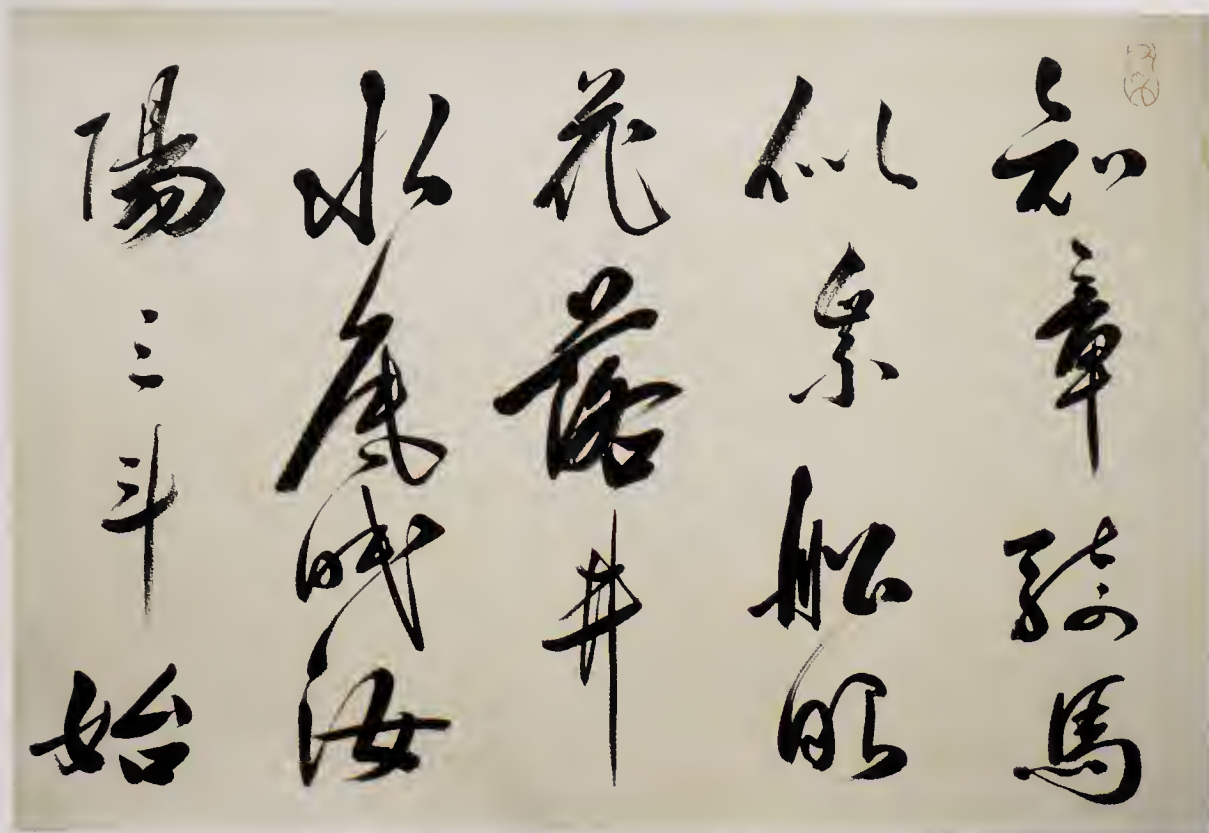 知章騎馬
似乘船眼
花落井
水底眠汝
陽三斗始